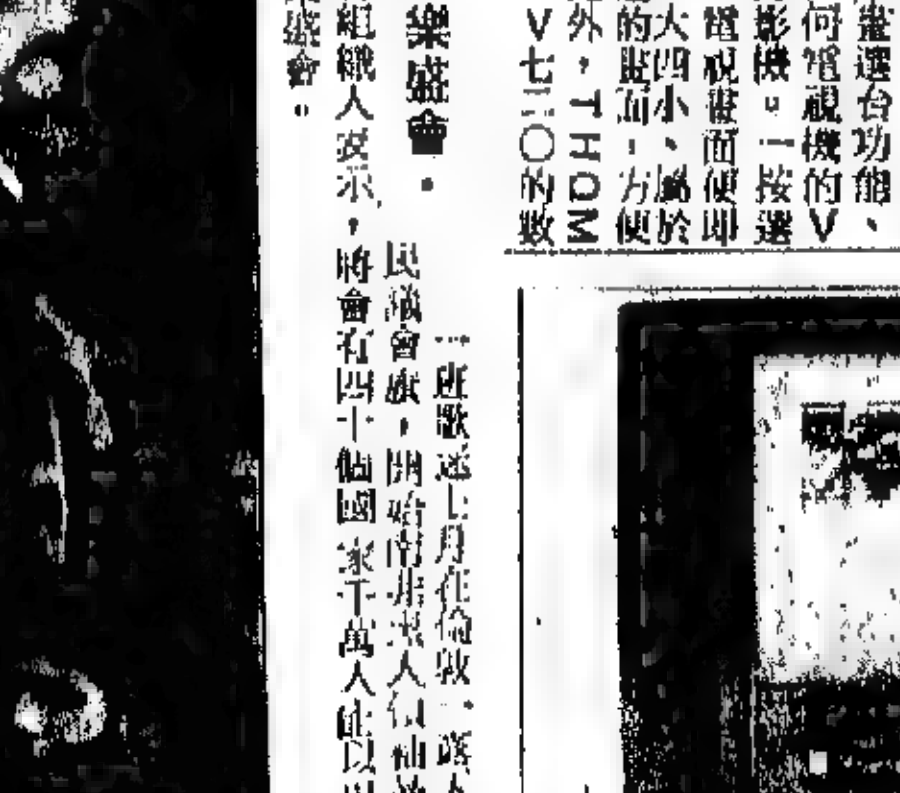 畫選台功能、
何電視機的V
影機。一按選
電視畫面便即
大四小、屬於
的畫面，方便
外，THOM
V七三〇的數
樂盛會。
一班歌迷上月在倫敦
民議會旗，開始南非黑人領袖
組織人表示，將會有四十個國家千萬人能以
盛會。